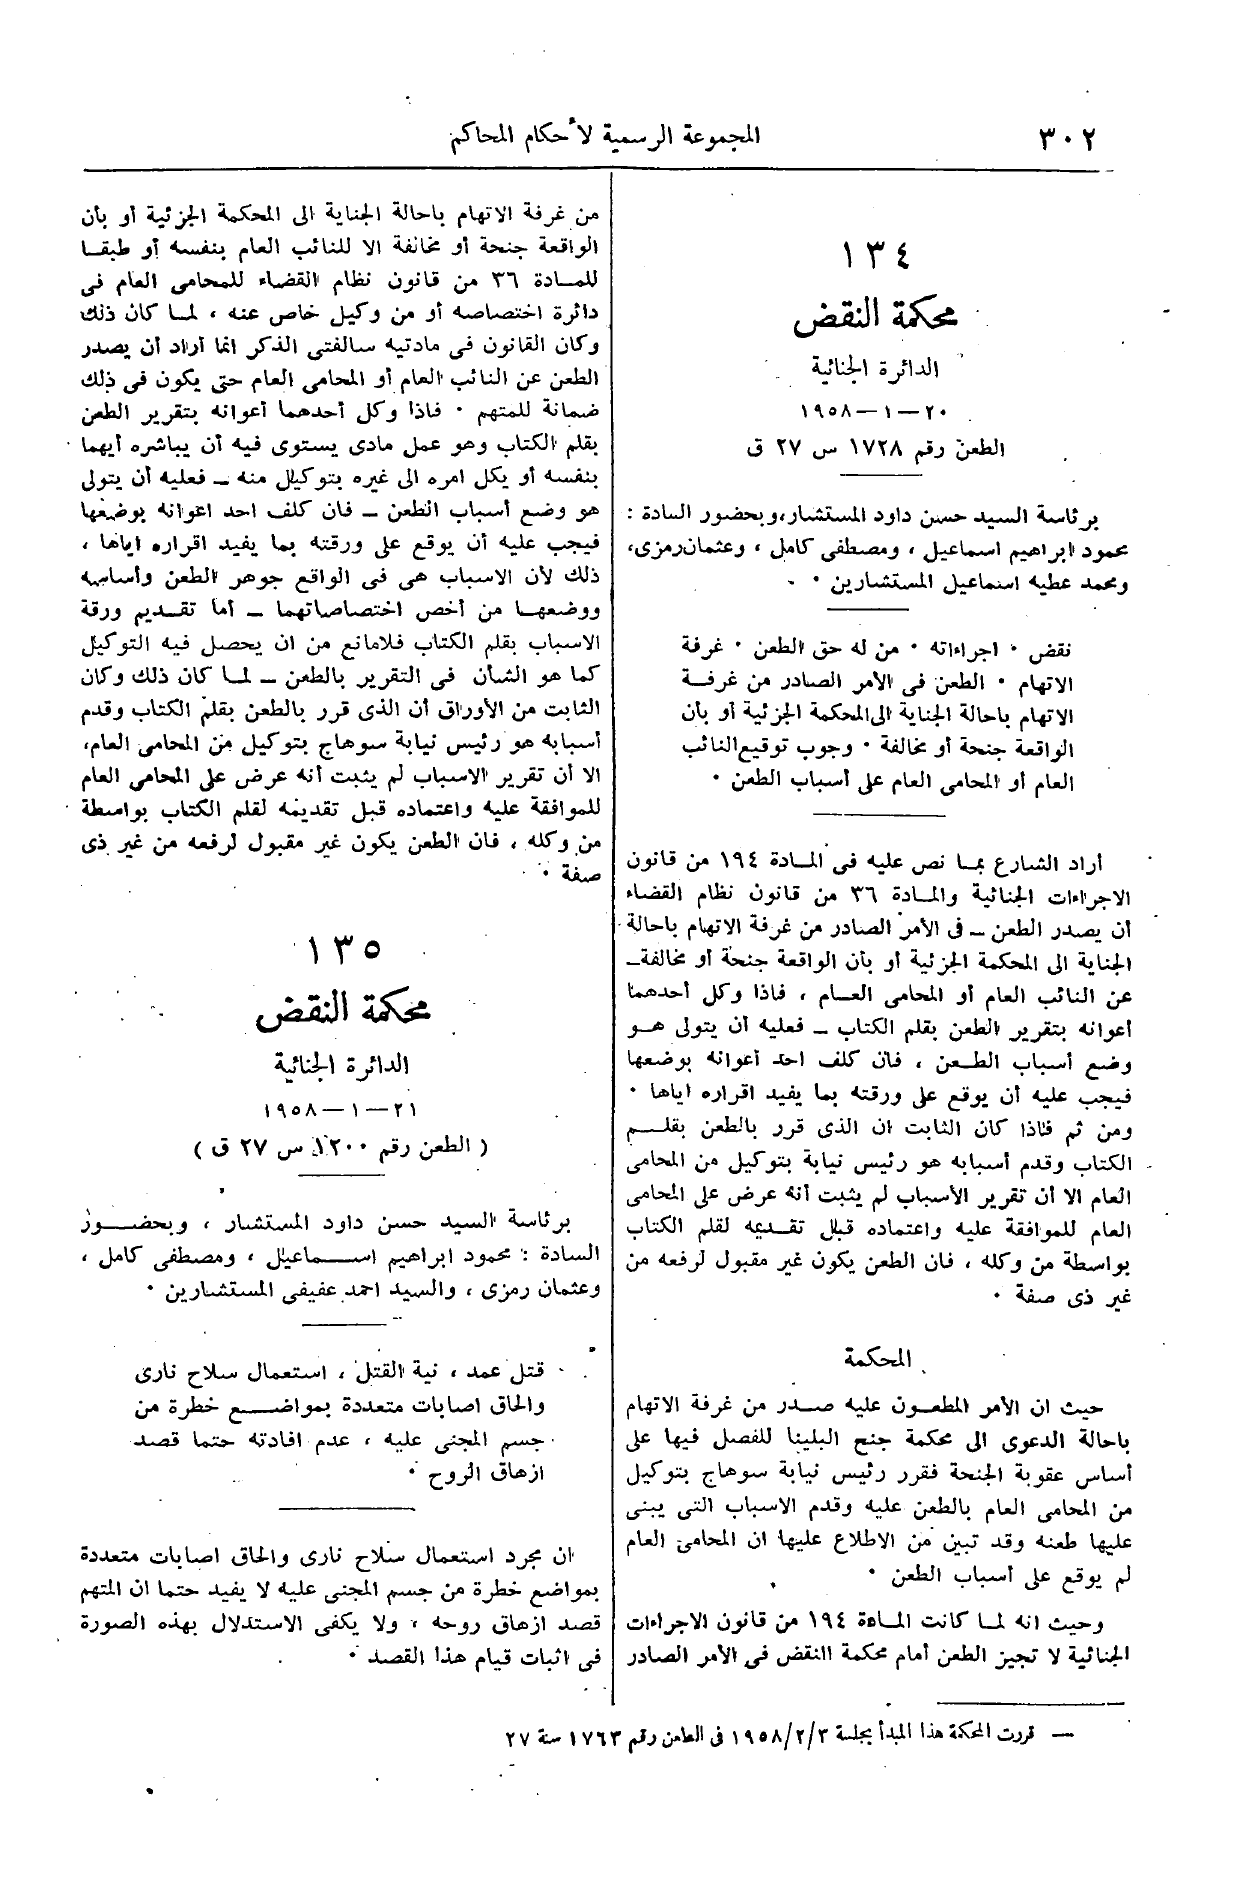 ٣٠٢
المجموعة الرسمية لأحكام المحاكم
١٣٤
محكمة النقض
الدائرة الجنائية
٢٠—١—١٩٥٨
الطعن رقم ١٧٢٨ س ٢٧ ق
برئاسة السيد حسن داود المستشار، وبحضور السادة :
محمود ابراهيم اسماعيل ، ومصطفى كامل ، وعثمان رمزى،
ومحمد عطيه اسماعيل المستشارين ٠
نقض ٠ اجراءاته ٠ من له حق الطعن ٠ غرفة
الاتهام ٠ الطعن فى الأمر الصادر من غرفة
الاتهام باحالة الجناية الى المحكمة الجزئية أو بأن
الواقعة جنحة أو مخالفة ٠ وجوب توقيع النائب
العام أو المحامى العام على أسباب الطعن ٠
أراد الشارع بما نص عليه فى المادة ١٩٤ من قانون
الاجراءات الجنائية والمادة ٣٦ من قانون نظام القضاء
أن يصدر الطعن ــ فى الأمر الصادر من غرفة الاتهام باحالة
الجناية الى المحكمة الجزئية أو بأن الواقعة جنحة أو مخالفة ــ
عن النائب العام أو المحامى العام ، فاذا وكل أحدهما
أعوانه بتقرير الطعن بقلم الكتاب ــ فعليه أن يتولى هو
وضع أسباب الطعن ، فان كلف احد أعوانه بوضعها
فيجب عليه أن يوقع على ورقته بما يفيد اقراره اياها ٠
ومن ثم فاذا كان الثابت ان الذى قرر بالطعن بقلم
الكتاب وقدم أسبابه هو رئيس نيابة بتوكيل من المحامى
العام الا أن تقرير الأسباب لم يثبت أنه عرض على المحامى
العام للموافقة عليه واعتماده قبل تقديمه لقلم الكتاب
بواسطة من وكله ، فان الطعن يكون غير مقبول لرفعه من
غير ذى صفة ٠
المحكمة
حيث ان الأمر المطعون عليه صدر من غرفة الاتهام
باحالة الدعوى الى محكمة جنح البلينا للفصل فيها على
أساس عقوبة الجنحة فقرر رئيس نيابة سوهاج بتوكيل
من المحامى العام بالطعن عليه وقدم الاسباب التى يبنى
عليها طعنه وقد تبين من الاطلاع عليها ان المحامى العام
لم يوقع على أسباب الطعن ٠
وحيث انه لما كانت المادة ١٩٤ من قانون الاجراءات
الجنائية لا تجيز الطعن أمام محكمة النقض فى الأمر الصادر
من غرفة الاتهام باحالة الجناية الى المحكمة الجزئية أو بأن
الواقعة جنحة أو مخالفة الا للنائب العام بنفسه أو طبقا
للمادة ٣٦ من قانون نظام القضاء للمحامى العام فى
دائرة اختصاصه أو من وكيل خاص عنه ، لما كان ذلك
وكان القانون فى مادتيه سالفتى الذكر انما أراد أن يصدر
الطعن عن النائب العام أو المحامى العام حتى يكون فى ذلك
ضمانة للمتهم ٠ فاذا وكل أحدهما أعوانه بتقرير الطعن
بقلم الكتاب وهو عمل مادى يستوى فيه أن يباشره أيهما
بنفسه أو يكل امره الى غيره بتوكيل منه ــ فعليه أن يتولى
هو وضع أسباب الطعن ــ فان كلف احد اعوانه بوضعها
فيجب عليه أن يوقع على ورقته بما يفيد اقراره اياها ،
ذلك لأن الاسباب هى فى الواقع جوهر الطعن وأساسه
ووضعها من أخص اختصاصاتهما ــ أما تقديم ورقة
الاسباب بقلم الكتاب فلامانع من ان يحصل فيه التوكيل
كما هو الشأن فى التقرير بالطعن ــ لما كان ذلك وكان
الثابت من الأوراق أن الذى قرر بالطعن بقلم الكتاب وقدم
أسبابه هو رئيس نيابة سوهاج بتوكيل من المحامى العام،
الا أن تقرير الاسباب لم يثبت أنه عرض على المحامى العام
للموافقة عليه واعتماده قبل تقديمه لقلم الكتاب بواسطة
من وكله ، فان الطعن يكون غير مقبول لرفعه من غير ذى
صفة ٠
١٣٥
محكمة النقض
الدائرة الجنائية
٢١—١—١٩٥٨
( الطعن رقم ١٢٠٠ س ٢٧ ق )
برئاسة السيد حسن داود المستشار ، وبحضور
السادة : محمود ابراهيم اسماعيل ، ومصطفى كامل ،
وعثمان رمزى ، والسيد احمد عفيفى المستشارين ٠
قتل عمد ، نية القتل ، استعمال سلاح نارى
والحاق اصابات متعددة بمواضع خطرة من
جسم المجنى عليه ، عدم افادته حتما قصد
ازهاق الروح ٠
ان مجرد استعمال سلاح نارى والحاق اصابات متعددة
بمواضع خطرة من جسم المجنى عليه لا يفيد حتما ان المتهم
قصد ازهاق روحه ، ولا يكفى الاستدلال بهذه الصورة
فى اثبات قيام هذا القصد ٠
— قررت المحكمة هذا المبدأ بجلسة ١٩٥٨/٢/٣ فى الطعن رقم ١٧٦٣ سنة ٢٧